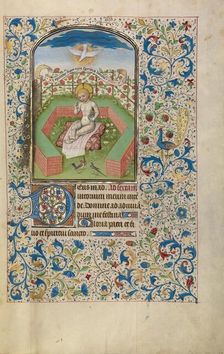 Deus in ad
iutorium meum inten
de Domine ad adiuuan
dum me festina
Gloria patri et fi
lio et spiritui sancto